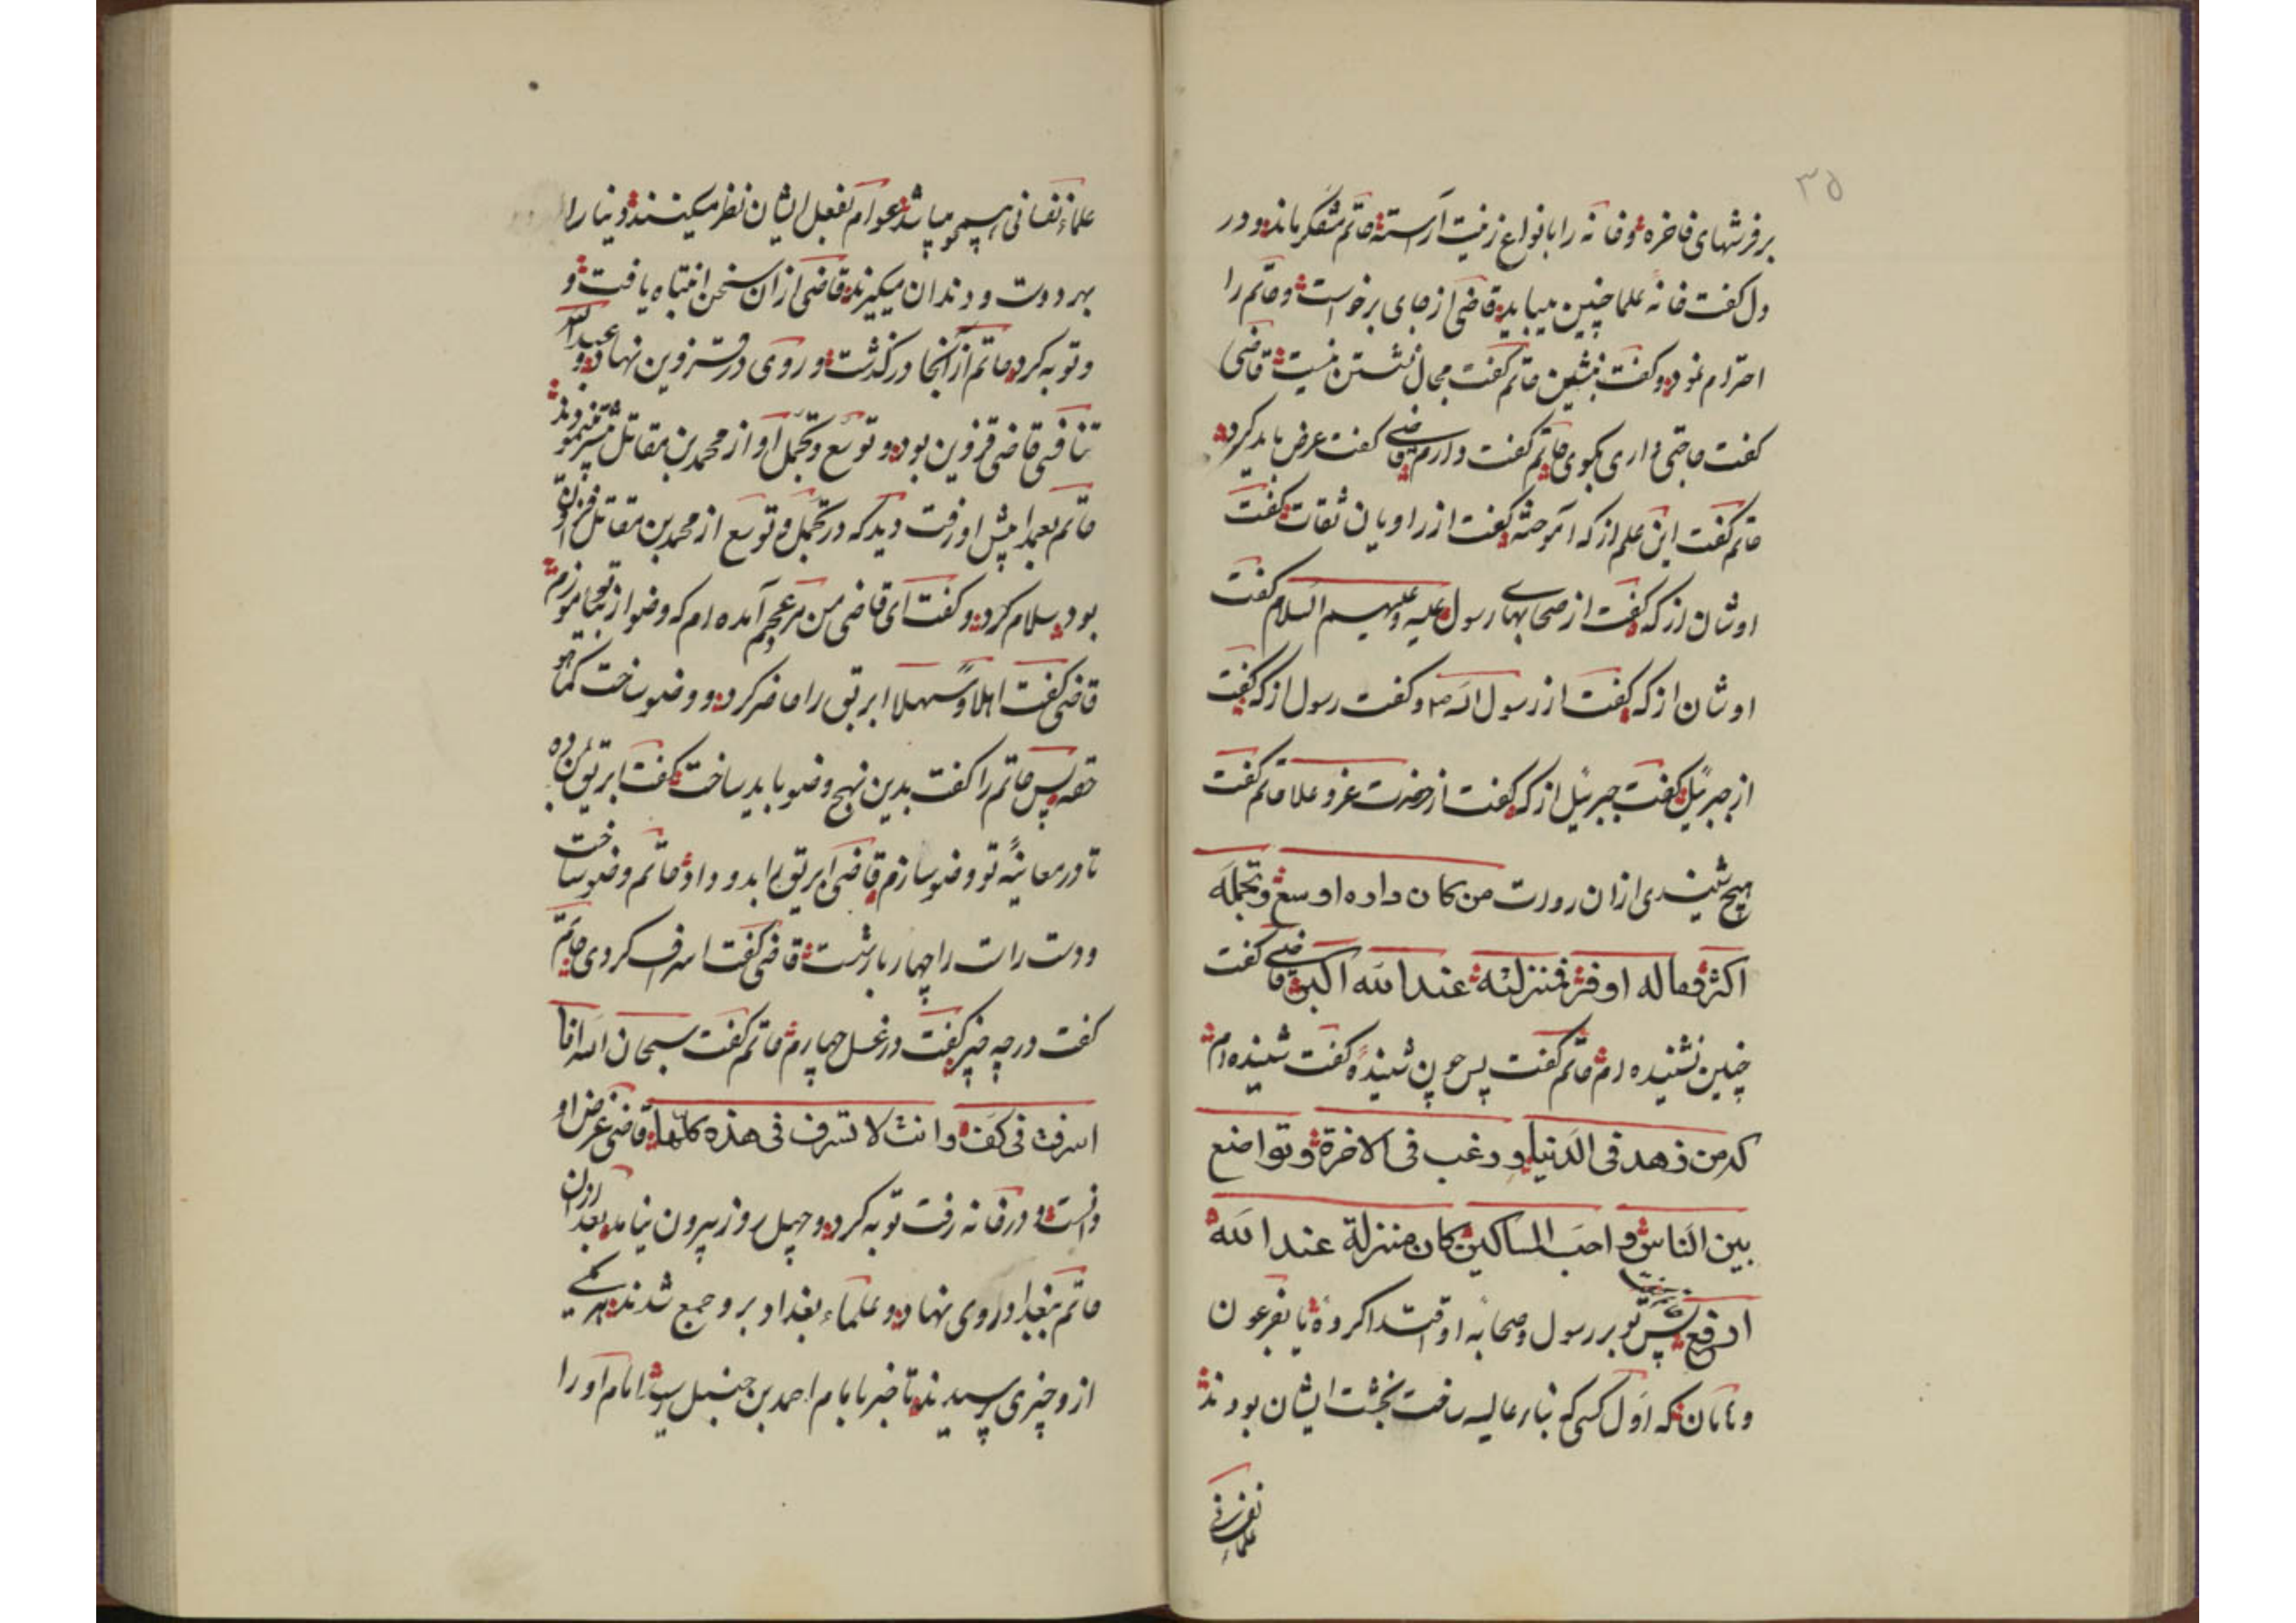 ۳۵
بر فرشهای فاخره و خانه را بانواع زینت آراسته حاتم متفکر بماند و در
دل گفت خانهٔ علما چنین میباید قاضی از جای برخواست و حاتم را
احترام نمود و گفت بنشین حاتم گفت مجال نشستن نیست قاضی
گفت حاجتی داری بگوی حاتم گفت دارم قاضی گفت عرض باید کرد
حاتم گفت این علم از که آموختهٔ گفت از راویان ثقات گفت
اوشان از که گفت از صحابهای رسول علیه و علیهم السلام گفت
اوشان از که گفت از رسول الله ص و گفت رسول از که گفت
از جبرئیل گفت جبرئیل از که گفت از حضرت عز و علا حاتم گفت
هیچ شنیدی ازان روزت من کان داره اوسع و تجمله
اکثر فعاله اوفر فمنزلته عند الله اکبر قاضی گفت
چنین نشنیده ام حاتم گفت پس چون شنیدهٔ گفت شنیده ام
که من زهد فی الدنیا و رغب فی الاخرة و تواضع
بین الناس و احب المساکین کان منزلة عند الله
ارفع پس تو بر رسول و صحابه او اقتدا کردهٔ یا بفرعون
و هامان که اول کسی که بنار عالیه ساخت بخشت ایشان بودند
علماء نفسانی
علماء نفسانی همچو میباشد عوام بفعل ایشان نظر میکنند و دنیا را
بهر دو دست و دندان میگیرند قاضی ازان سخن انتباه یافت و
و توبه کرد حاتم از آنجا در گذشت و روی در قزوین نهاد و عبدالله
تنافسی قاضی قزوین بود و توسع و تجمل او از محمد بن مقاتل بیشتر مینمودند
حاتم بعمدا پیش او رفت دید که در تجمل و توسع از محمد بن مقاتل افزون
بود سلام کرد و گفت ای قاضی من مرد عجمم آمده ام که وضو از تو بیاموزم
قاضی گفت اهلا و سهلا ابریق را حاضر کرد و وضو ساخت کما هو
حقه پس حاتم را گفت بدین نهج وضو باید ساخت گفت ابریق بمن ده
تا در معاینهٔ تو وضو سازم قاضی ابریق را بدو داد حاتم وضو ساخت
و دست راست را چهار بار شست قاضی گفت اسراف کردی حاتم
گفت در چه چیز گفت در غسل چهارم حاتم گفت سبحان الله انا
اسرفت فی کف و انت لا تسرف فی هذه کلها قاضی غرض او
دانست و در خانه رفت توبه کرد و چهل روز بیرون نیامد بعد ازان
حاتم ببغداد روی نهاد و علماء بغداد برو جمع شدند هر یکی
ازو چیزی پرسیدند تا خبر بامام احمد بن حنبل رسید امام او را